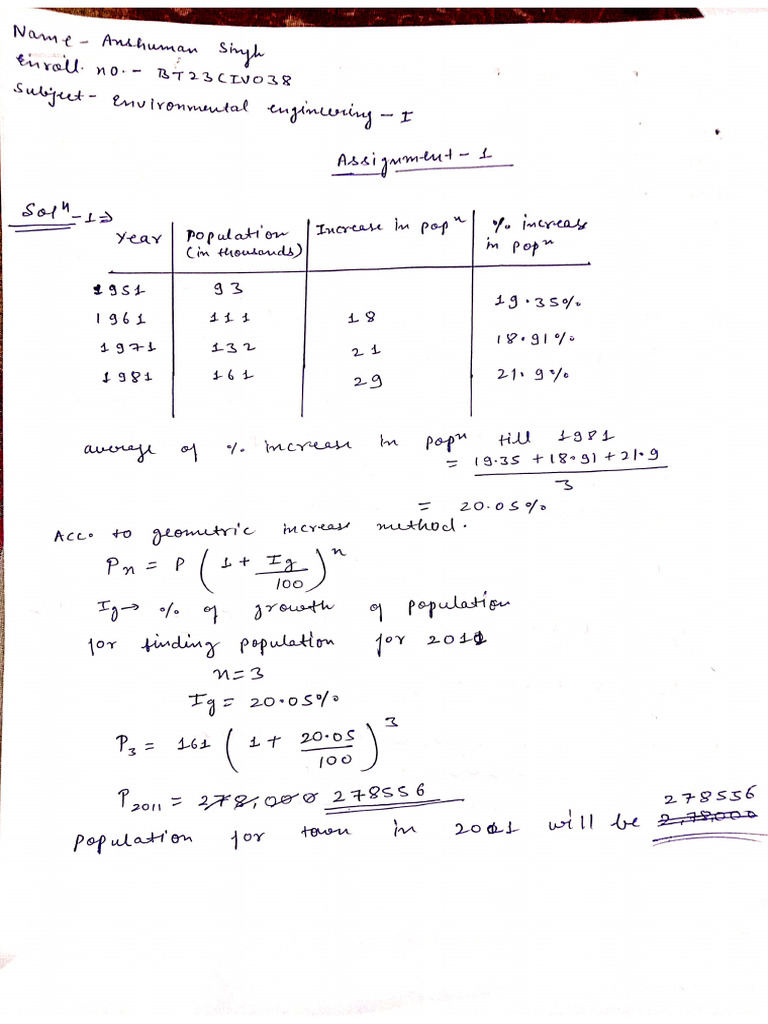 Name - Anshuman Singh
Enroll. no. - BT23CIV038
Subject - Environmental engineering - I
Assignment - 1
Solⁿ - 1 ⇒
Year | Population (in thousands) | Increase in popⁿ | % increase in popⁿ
1951 | 93
19.35%
1961 | 111 | 18
18.91%
1971 | 132 | 21
1981 | 161 | 29 | 21.9%
average of % increase in popⁿ till 1981
= (19.35 + 18.91 + 21.9) / 3
= 20.05%
Acc. to geometric increase method.
Pn = P (1 + Ig/100)ⁿ
Ig → % of growth of population
for finding population for 2011
n = 3
Ig = 20.05%
P₃ = 161 (1 + 20.05/100)³
P₂₀₁₁ = 278,000 278556
278556
population for town in 2011 will be 2,78,000